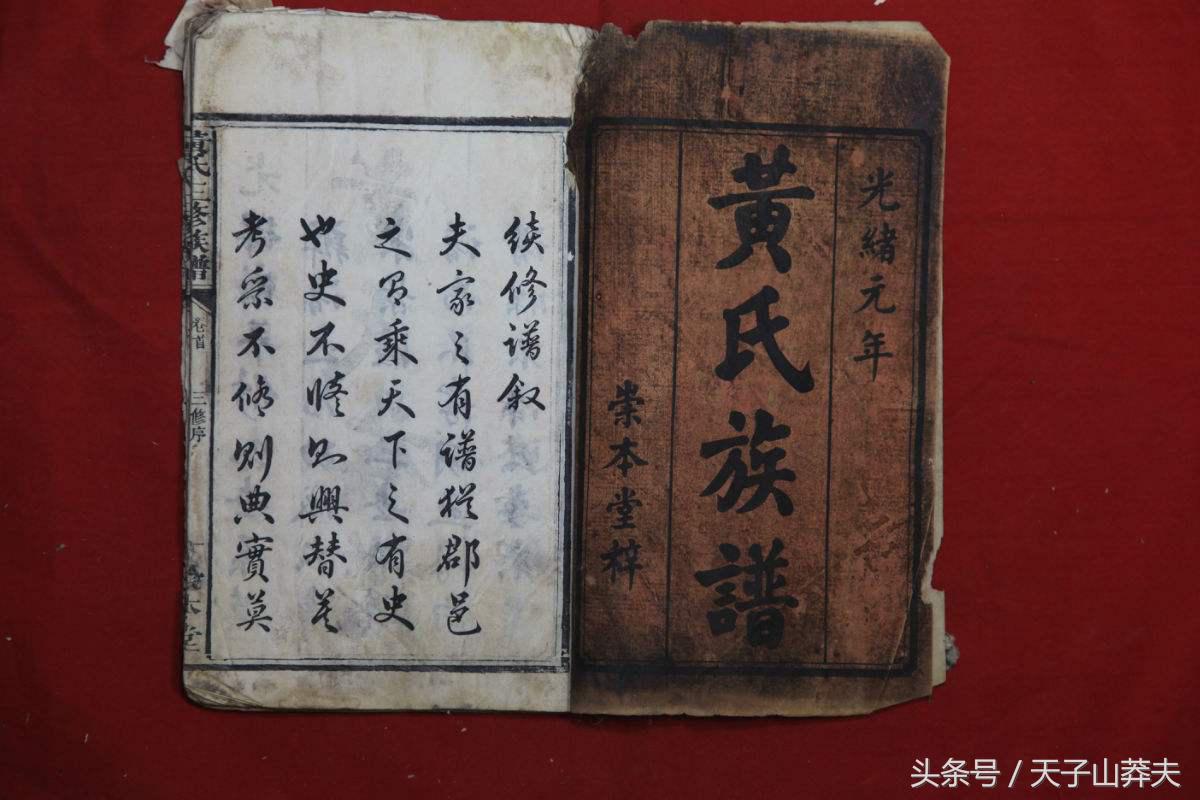 光緒元年
黃氏族譜
崇本堂梓
續修譜叙
夫家之有譜猶郡邑
之有乘天下之有史
也史不脩則興替莫
考乘不脩則典實莫
黃氏三修族譜
卷首
三修序
崇本堂
头条号 / 天子山莽夫